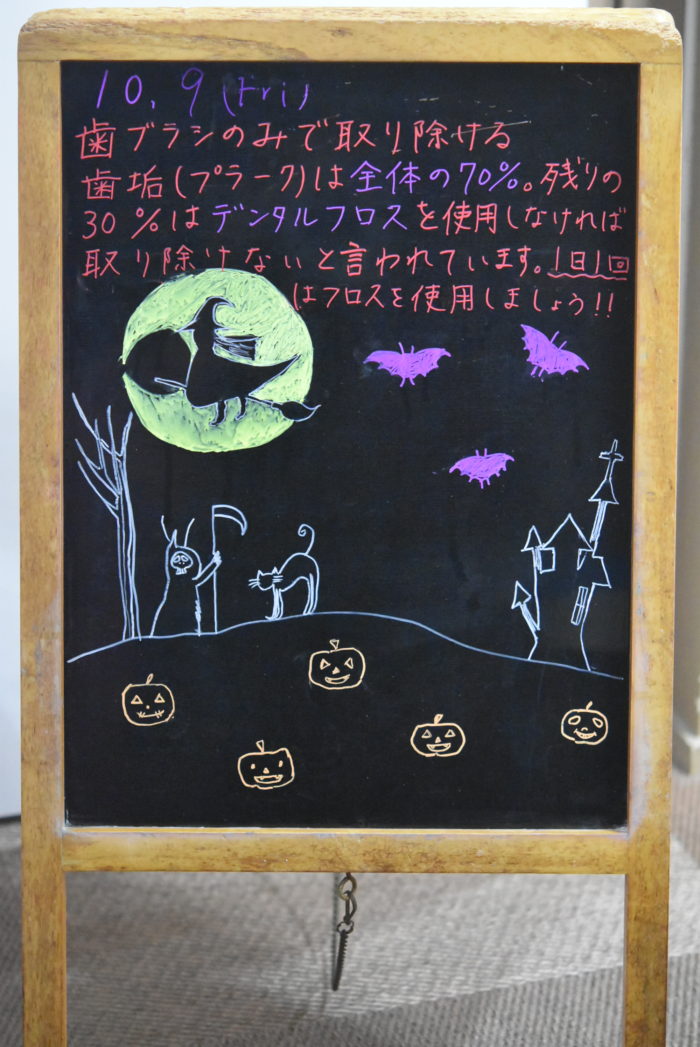 10, 9 (Fri)
歯ブラシのみで取り除ける
歯垢(プラーク)は全体の70%。残りの
30%はデンタルフロスを使用しなければ
取り除けないと言われています。1日1回
はフロスを使用しましょう!!